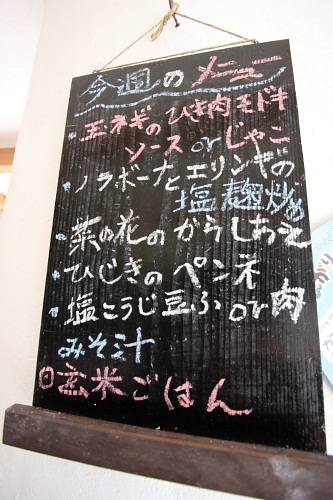 今週のメニュー
・玉ネギのひき肉モドキ
ソース or じゃこ
・ノラボーナとエリンギの
塩麹炒め
・菜の花のからしあえ
・ひじきのペンネ
・塩こうじ豆ふ or 肉
みそ汁
玄米ごはん